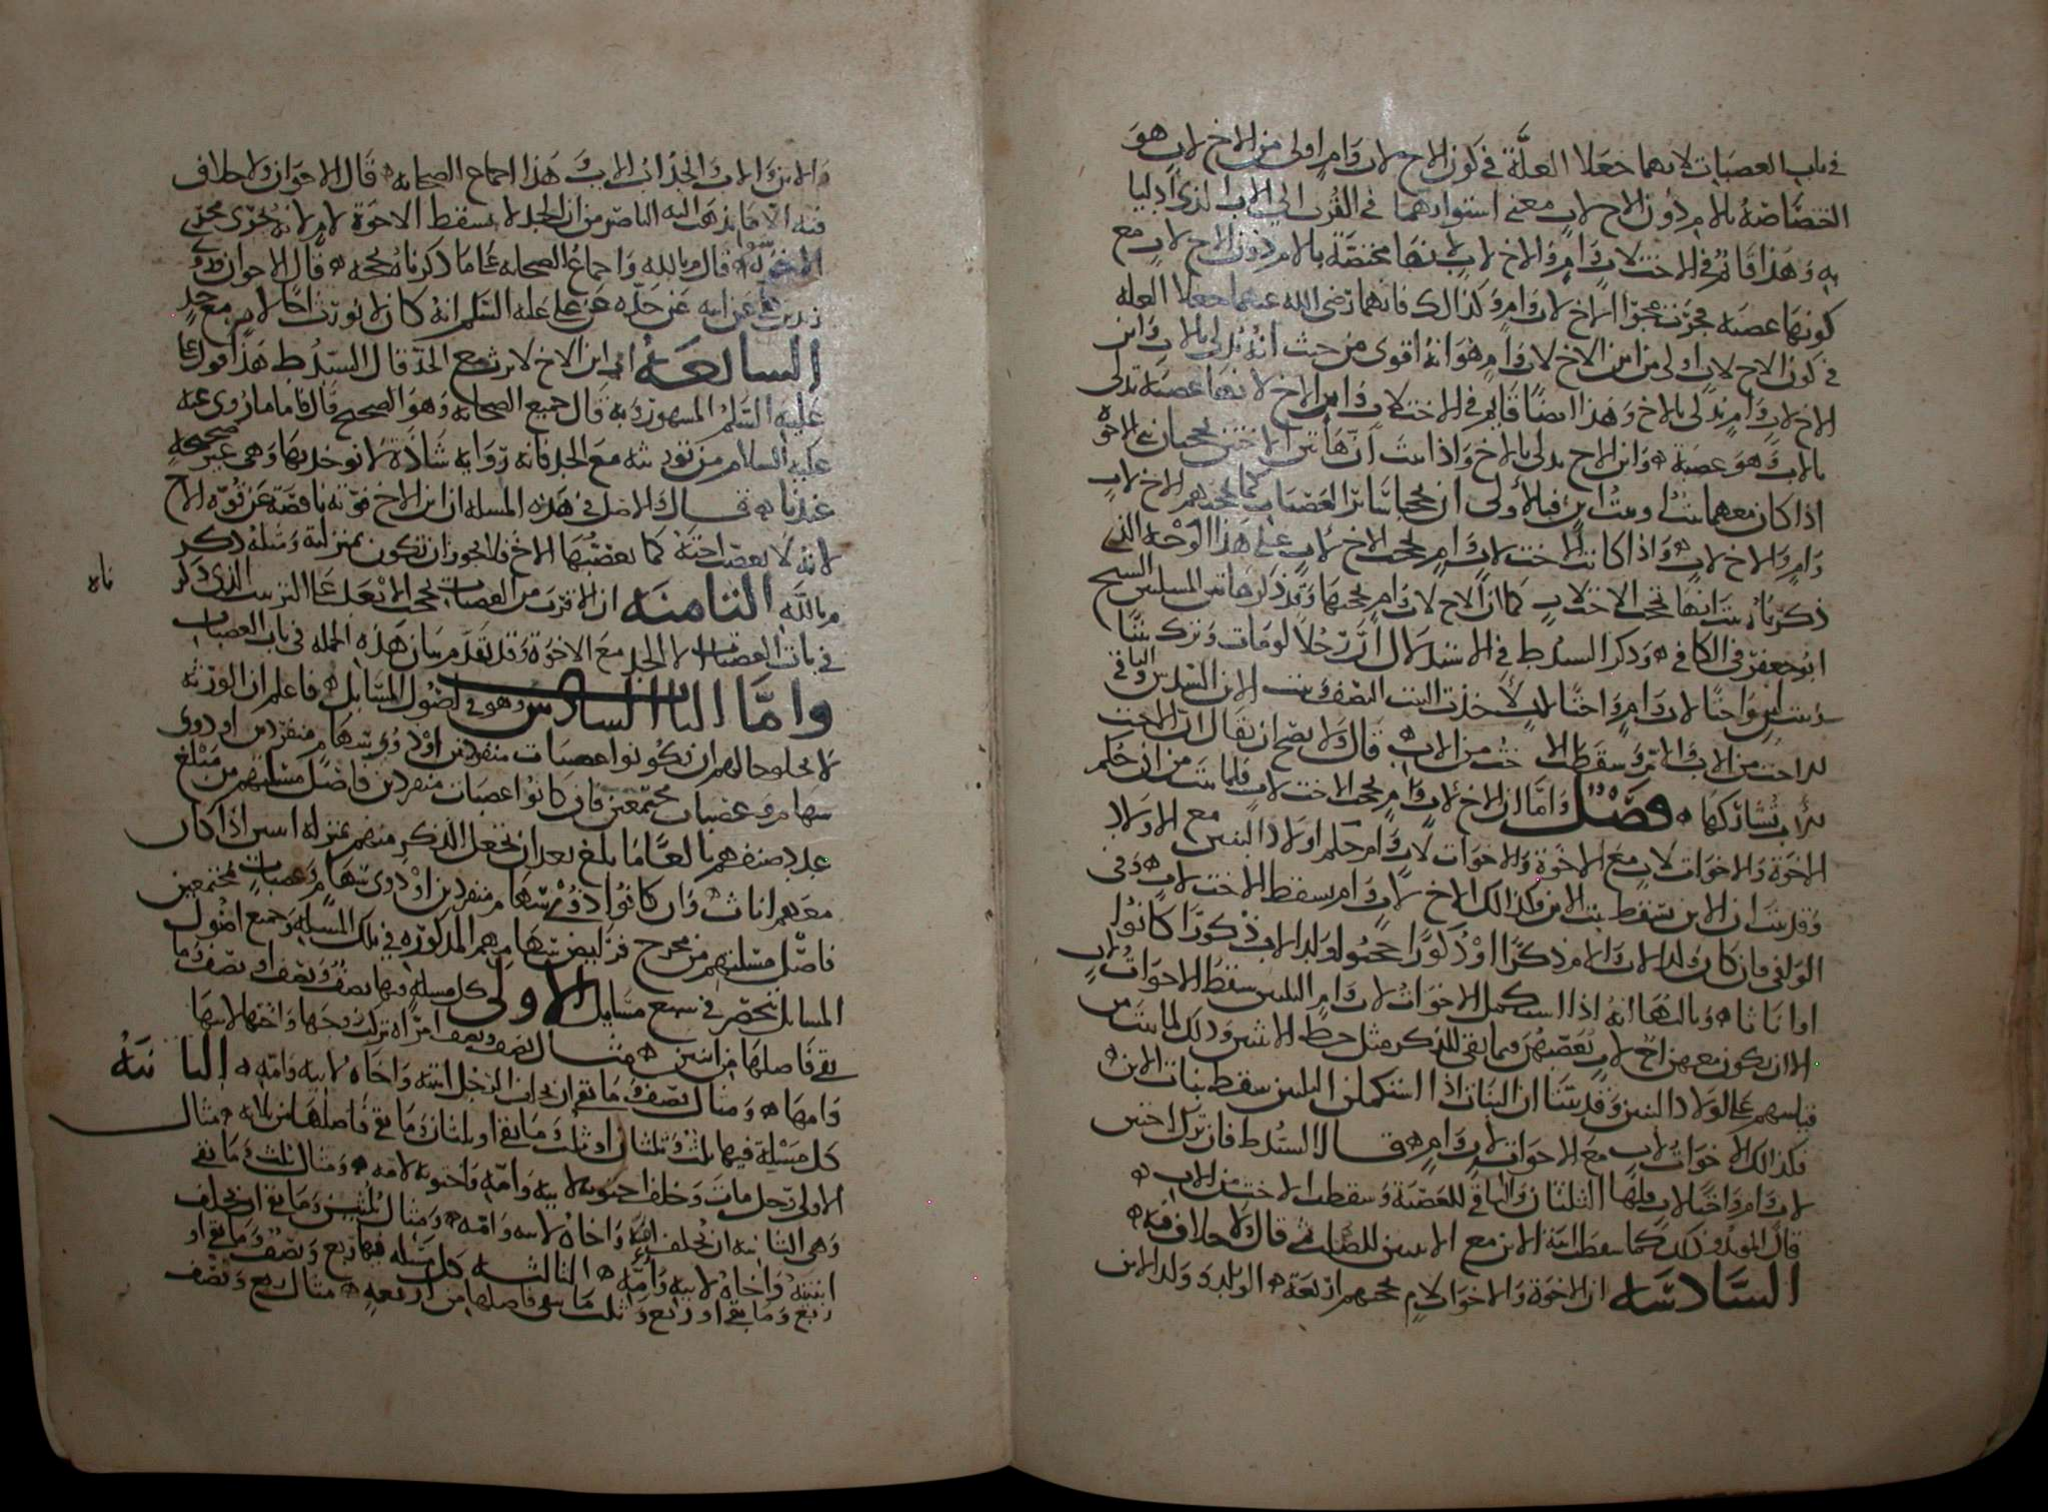 في باب العصبات لانهما جعلا العلة في كون الاخ لاب وام اولى من الاخ لاب هو
اختصاصه بالام دون الاخ لاب معنى استوائهما في القربى الى الاب الذي ادليا
به وهذا قائم في الاخت لاب وام والاخ لاب لانها مختصة بالام دون الاخ لاب مع
كونها عصبه فجرت مجرى الاخ لاب وام وكذالك فانهما رضي الله عنهما جعلا العله
في كون الاخ لاب اولى من ابن الاخ لاب وام هو انه اقوى من حيث انه يدلي بالاب وابن
الاخ لاب وام يدلي بالاخ وهذا ايضا قائم في الاخت لاب وابن الاخ لانها عصبة تدلي
بالاب وهو عصبة وابن الاخ يدلي بالاخ واذا ثبت ان هاتين الاختين يحجبان بني الاخوة
اذا كان معهما بنت او بنت ابن فبالأولى ان يحجبا سائر العصبات كما يحجبهم الاخ لاب
وام والاخ لاب واذا كانت الاخت لاب وام تحجب الاخ لاب على هذا الوجه الذي
ذكرناه ثبت انها تحجب الاخت لاب كما ان الاخ لاب وام يحجبها وقد ذكر هاتين المسلتين الشيخ
ابو جعفر في الكافي وذكر السيد ط في الاستدلال ان رجلا لو مات وترك بنتا
وبنت ابن واختا لاب وام واختا لاب لأخذت البنت النصف وبنت الابن السدس والباقي
للاخت من الاب والام وسقطت الاخت من الاب قال ولا يصح ان يقال ان الاخت
للأب تشاركها فصل واما ان الاخ لاب وام يحجب الاخت لاب فلما ثبت من ان حكم
الاخوة والاخوات لاب مع الاخوة والاخوات لاب وام حكم اولاد البنين مع الاولاد
وقد ثبت ان الابن يسقط بنت الابن فكذالك الاخ لاب وام يسقط الاخت لاب وفي
الوافي فان كان ولد الاب والام ذكرا او ذكورا حجبوا ولد الاب ذكورا كانوا
او اناثا وثالثها انه اذا استكمل الاخوات لاب وام الثلثين سقط الاخوات لاب
الا ان يكون معهن اخ لاب يعصبهن فيما بقي للذكر مثل حظ الانثيين وذلك لما ثبت من
قياسهم على اولاد البنين وقد بينا ان البنات اذا استكملن الثلثين سقط بنات الابن
فكذالك الاخوات لاب مع الاخوات لاب وام قال السيد ط فان ترك اختين
لاب وام واختا لاب فلهما الثلثان والباقي للعصبة وسقطت الاخت من الاب
قال المؤيد وذلك كما سقط ابنة الابن مع الابنتين للصلب ثم قال ولا خلاف فيه
السادسه ان الاخوة والاخوات لام يحجبهم اربعة الولد وولد الابن
والابن والاب والجد اب الاب وهذا اجماع الصحابه قال الاخوان ولا خلاف
فيه الا ما يذهب اليه الناصر من ان الجد لا يسقط الاخوة لام لانه يجرى مجرى
الاخوة قال م بالله واجماع الصحابه على ما ذكرناه يحجه قال الاخوان وروى
زيد بن علي عن ابيه عن جده عن علي عليه السلم انه كان لا يورث اخا لام مع جد
السابعه ان ابن الاخ لا يرث مع الجد قال السيد ط هذا قول علي
عليه السلم المشهور وبه قال جميع الصحابه وهو الصحيح قال فاما ما روى عنه
عليه السلام من توريثه مع الجد فانه رواية شاذة لا نوخذ بها وهي غير صحيحة
عندنا قال والاصل في هذه المسله ان ابن الاخ قوته ناقصة عن قوة الاخ
لانه لا يعصب اخته كما يعصبها الاخ فلا يجوز ان تكون بمنزلته ومثله ذكر
م بالله الثامنه ان الاقرب من العصبات يحجب الابعد على الترتيب الذي ذكر
ناه
في باب العصبات الا الجد مع الاخوة وقد تقدم بيان هذه الجمله في باب العصبات
واما الباب السادس وهو في اصول المسائل فاعلم ان الورثه
لا يخلو حالهم ان يكونوا عصبات منفردين او ذوي سهام منفردين او ذوى
سهام وعصبات مجتمعين فان كانوا عصبات منفردين فاصل مسئلتهم من مبلغ
عدد صنفهم بالغا ما بلغ بعد ان تجعل الذكر منهم بمنزلة اثنين اذا كان
معهم اناث وان كانوا ذوي سهام منفردين او ذوى سهام وعصبات مجتمعين
فاصل مسئلتهم من مخرج فرايض سهامهم المذكورة في تلك المسله وجميع اصول
المسائل تنحصر في سبع مسايل الاولى كل مسله فيها نصف ونصف او نصف وما
بقي فاصلها من اثنين مثال نصف ونصف امراة تركت زوجها واختها لابيها
وامها ومثال نصف وما بقي ان يخلف الرجل ابنته واخاه لابيه وامه الثانية
كل مسئلة فيها ثلث وثلثان او ثلث وما بقي او ثلثان وما بقي فاصلها من ثلاثه مثال
الاولى رجل مات وخلف اختيه لابيه وامه واختيه لامه ومثال ثلث وما بقي
وهي الثانيه ان يخلف امه واخاه لابيه وامه ومثال ثلثين وما بقي ان يخلف
ابنتيه واخاه لابيه وامه الثالثه كل مسله فيها ربع ونصف وما بقي او
ربع وما بقي او ربع وثلث ما بقي فاصلها من اربعه مثال ربع ونصف